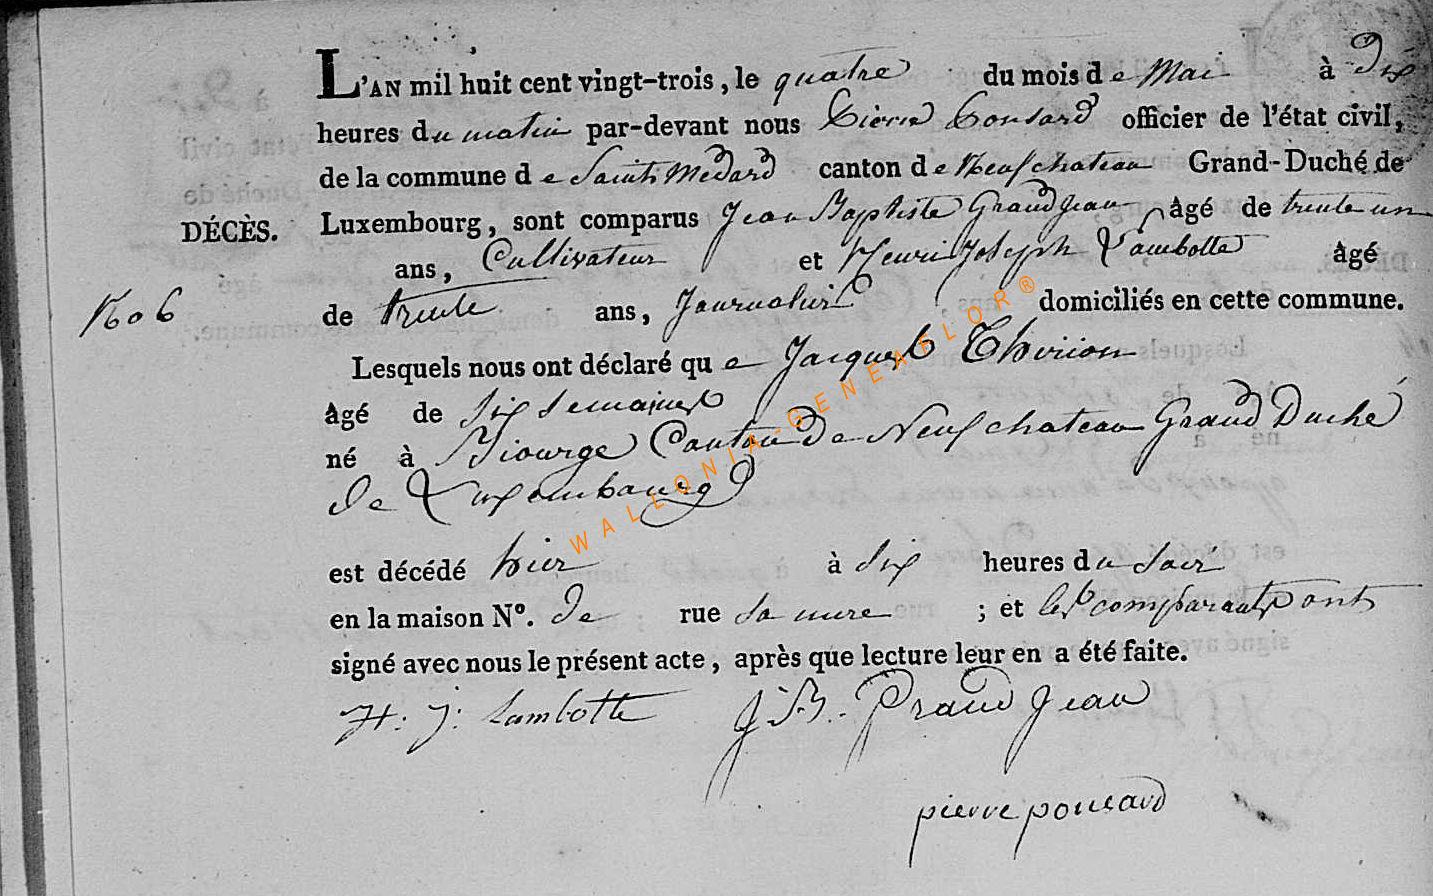 L'AN mil huit cent vingt-trois, le quatre du mois de Mai à dix
heures du matin par-devant nous Pierre Ponsard officier de l'état civil,
de la commune de Saint Médard canton de Neufchateau Grand-Duché de
DÉCÈS.
Luxembourg, sont comparus Jean Baptiste Grandjean, âgé de trente un
ans, Cultivateur et Henri Joseph Lambotte âgé
No 6
de trente ans, Journalier domiciliés en cette commune.
Lesquels nous ont déclaré que Jacques Thirion
âgé de six semaines
né à Biourge Canton de Neufchateau Grand Duché
de Luxembourg
WALLONIA-GENEAFLOR®
est décédé hier à six heures du soir
en la maison N°. de rue sa mere ; et les comparants ont
signé avec nous le présent acte, après que lecture leur en a été faite.
H: J: Lambotte J: B. Grand Jean
pierre poncard